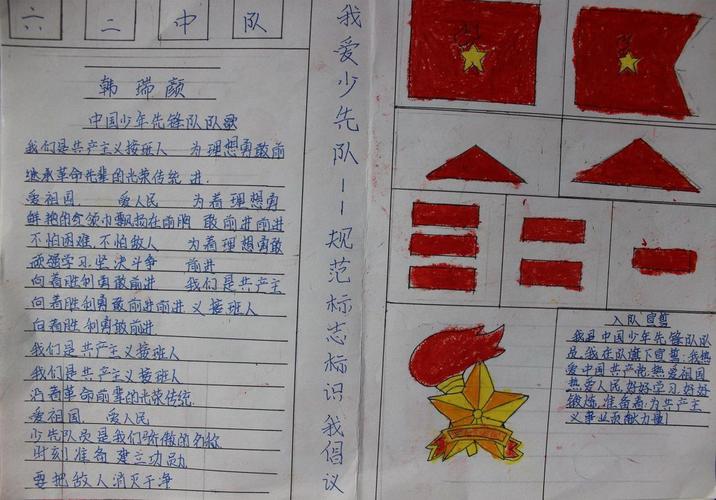 六二中队
韩瑞颜
中国少年先锋队队歌
我们是共产主义接班人 为理想勇敢前
继承革命先辈的光荣传统 进
爱祖国 爱人民 为着理想勇
鲜艳的红领巾飘扬在前胸 敢前进前进
不怕困难,不怕敌人 为着理想勇敢
顽强学习,坚决斗争 前进
向着胜利勇敢前进 我们是共产主
向着胜利勇敢前进前进 义接班人
向着胜利勇敢前进
我们是共产主义接班人
我们是共产主义接班人
沿着革命前辈的光荣传统
爱祖国 爱人民
少先队员是我们骄傲的名称
时刻准备 建立功勋
要把敌人消灭干净
我爱少先队——规范标志标识我倡议
入队宣誓
我是中国少年先锋队队
员,我在队旗下宣誓:我热
爱中国共产党,热爱祖国
热爱人民,好好学习,好好
锻炼,准备着:为共产主
义事业贡献力量!